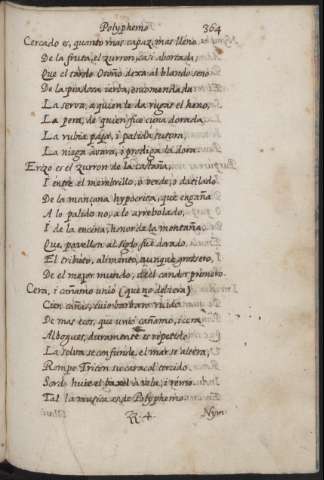 Polyphemo 364
Cercado es, quanto mas capaz, mas lleno
De la fruta, el zurron, casi abortada,
Que el tardo Otoño dexa al blando seno
De la piadosa ierba, encomendada
La serva, a quien le da rugas el heno,
La pera, de quien fue cuna dorada
La rubia paja, i palida tutora,
La niega avara, i prodiga la dora.
Erizo es el zurron de la castaña,
I entre el membrillo, o verde, o datilado
De la mançana hypocrita, que engaña
A lo palido no, a lo arrebolado,
I de la encina, honor de la montaña,
Que pavellon al siglo fue dorado,
El tributo, alimento, aunque grosero,
De el mejor mundo, de el candor primero.
Cera, i cañamo unio (que no debiera)
Cien cañas, cuio barbaro ruido
De mas ecos, que unio cañamo, i cera
Albogues, duramente es repetido.
La selva se confunde, el mar se altera,
Rompe Triton su caracol torcido,
Sordo huie el baxel a vela, i remo
Tal la musica es de Polyphemo.
Nym